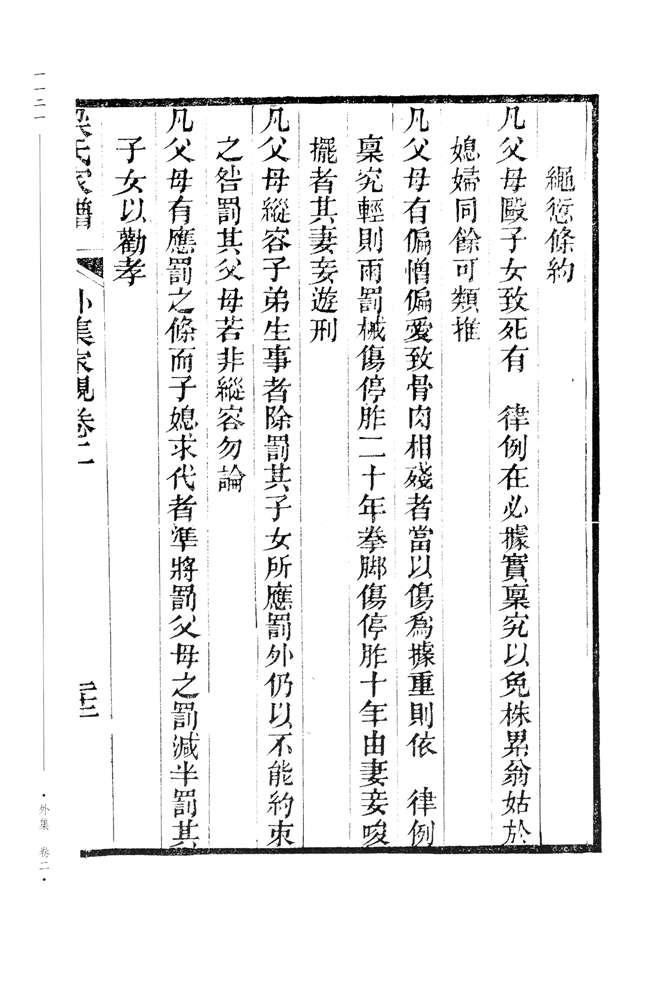 繩愆條約
凡父母毆子女致死有　律例在必據實稟究以免株累翁姑於
媳婦同餘可類推
凡父母有偏憎偏愛致骨肉相殘者當以傷爲據重則依　律例
稟究輕則兩罰械傷停胙二十年拳脚傷停胙十年由妻妾唆
擺者其妻妾遊刑
凡父母縱容子弟生事者除罰其子女所應罰外仍以不能約束
之咎罰其父母若非縱容勿論
凡父母有應罰之條而子媳求代者準將罰父母之罰減半罰其
子女以勸孝
梁氏家譜　外集家規卷二　二十二
一一二一
·外集　卷二·